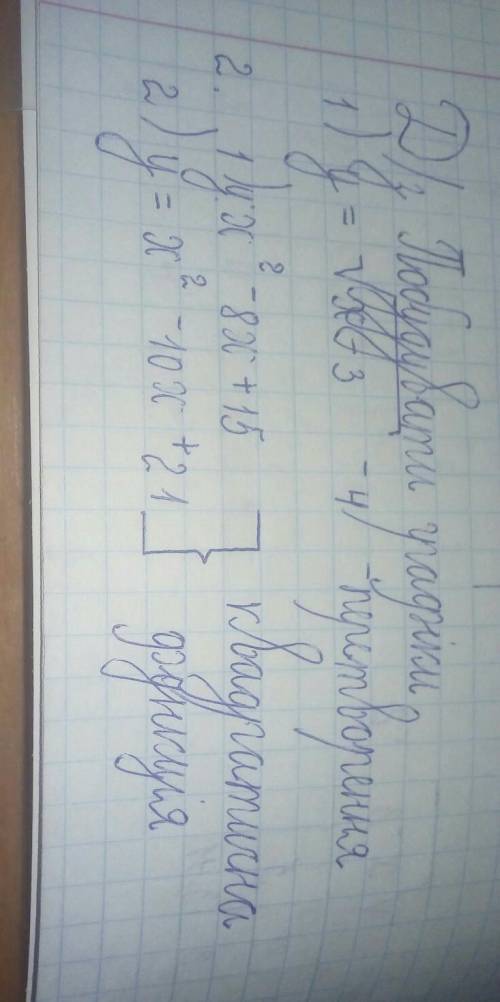 Д/з Побудувати графіки
1) y = √x+3 - 4 - претворення
2. 1) y x² - 8x + 15
2) y = x² - 10x + 21
квадратична
функція